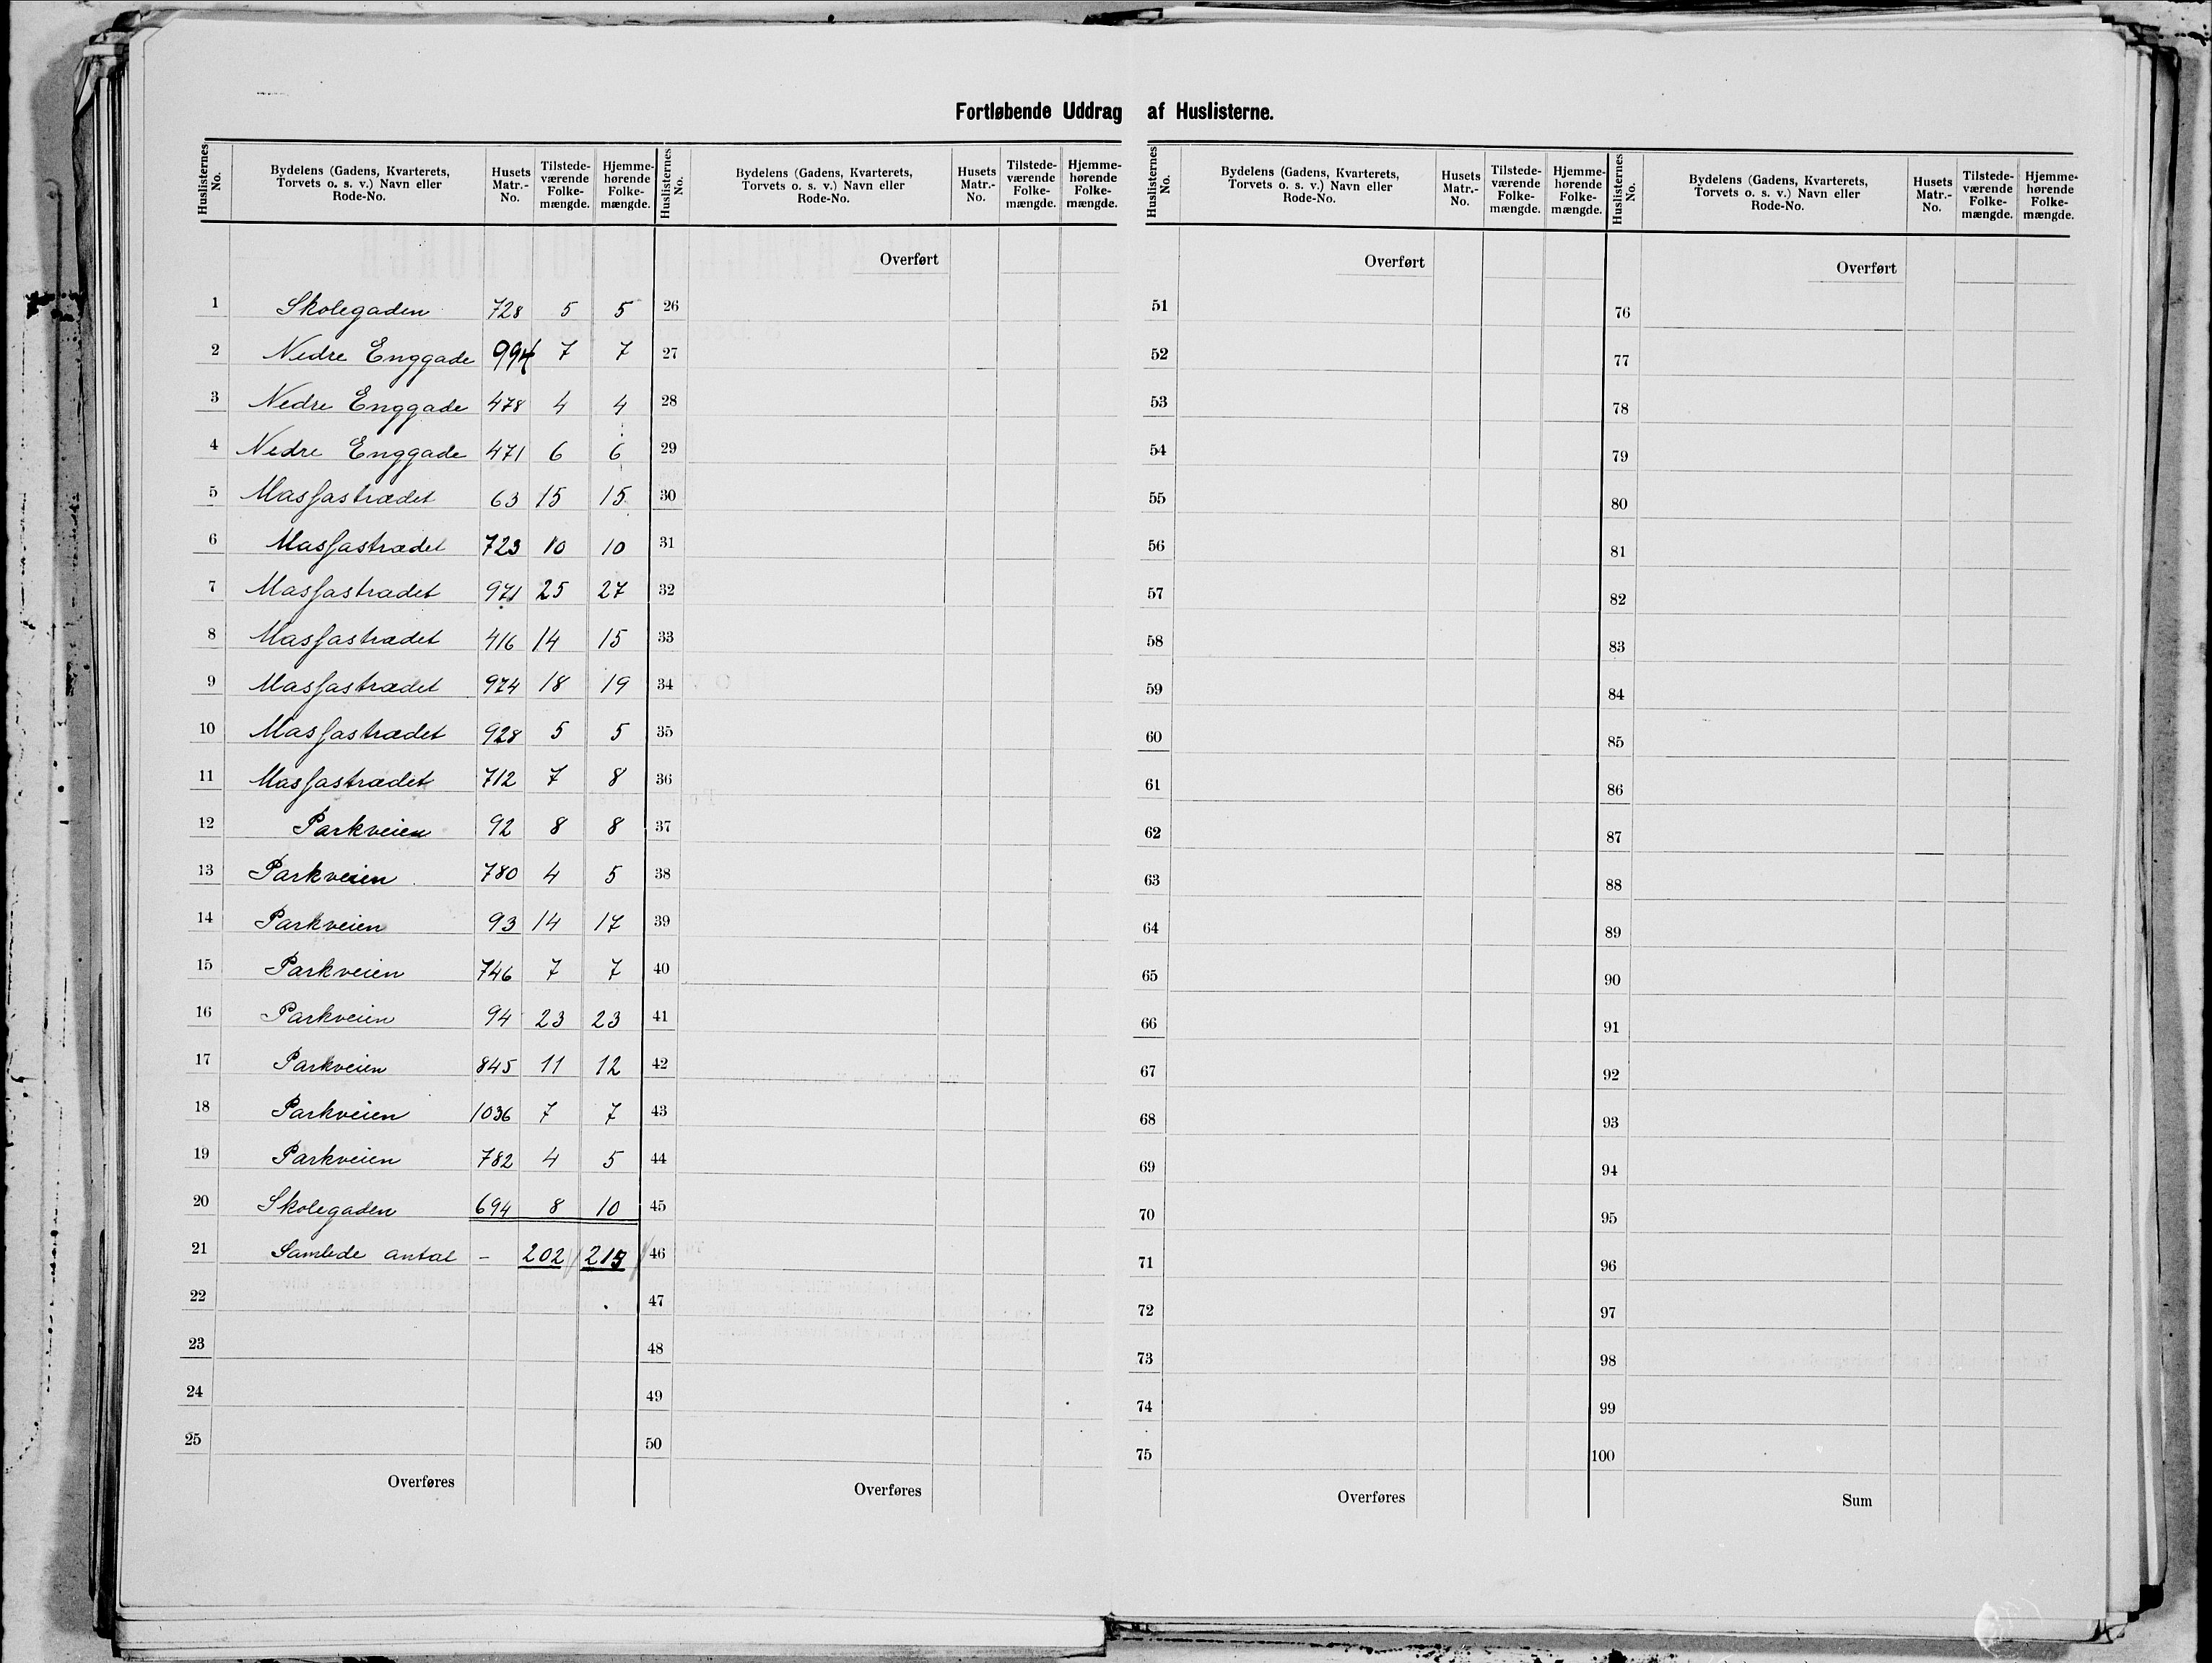 Fortløbende Uddrag af Huslisterne.
Huslisternes No. | Bydelens (Gadens, Kvarterets, Torvets o. s. v.) Navn eller Rode-No. | Husets Matr.-No. | Tilstede-værende Folke-mængde. | Hjemme-hørende Folke-mængde.
Huslisternes No. | Bydelens (Gadens, Kvarterets, Torvets o. s. v.) Navn eller Rode-No. | Husets Matr.-No. | Tilstede-værende Folke-mængde. | Hjemme-hørende Folke-mængde.
Huslisternes No. | Bydelens (Gadens, Kvarterets, Torvets o. s. v.) Navn eller Rode-No. | Husets Matr.-No. | Tilstede-værende Folke-mængde. | Hjemme-hørende Folke-mængde.
Huslisternes No. | Bydelens (Gadens, Kvarterets, Torvets o. s. v.) Navn eller Rode-No. | Husets Matr.-No. | Tilstede-værende Folke-mængde. | Hjemme-hørende Folke-mængde.
Overført Overført Overført
1 Skolegaden 728 5 5 26 51 76
2 Nedre Enggade 994 7 7 27 52 77
3 Nedre Enggade 478 4 4 28 53 78
4 Nedre Enggade 471 6 6 29 54 79
5 Masjastrædet 63 15 15 30 55 80
6 Masjastrædet 723 10 10 31 56 81
7 Masjastrædet 971 25 27 32 57 82
8 Masjastrædet 416 14 15 33 58 83
9 Masjastrædet 974 18 19 34 59 84
10 Masjastrædet 928 5 5 35 60 85
11 Masjastrædet 712 7 8 36 61 86
12 Parkveien 92 8 8 37 62 87
13 Parkveien 780 4 5 38 63 88
14 Parkveien 93 14 17 39 64 89
15 Parkveien 746 7 7 40 65 90
16 Parkveien 94 23 23 41 66 91
17 Parkveien 845 11 12 42 67 92
18 Parkveien 1036 7 7 43 68 93
19 Parkveien 782 4 5 44 69 94
20 Skolegaden 694 8 10 45 70 95
21 Samlede antal - 202 215 46 71 96
22 47 72 97
23 48 73 98
24 49 74 99
25 50 75 100
Overføres Overføres Overføres Sum